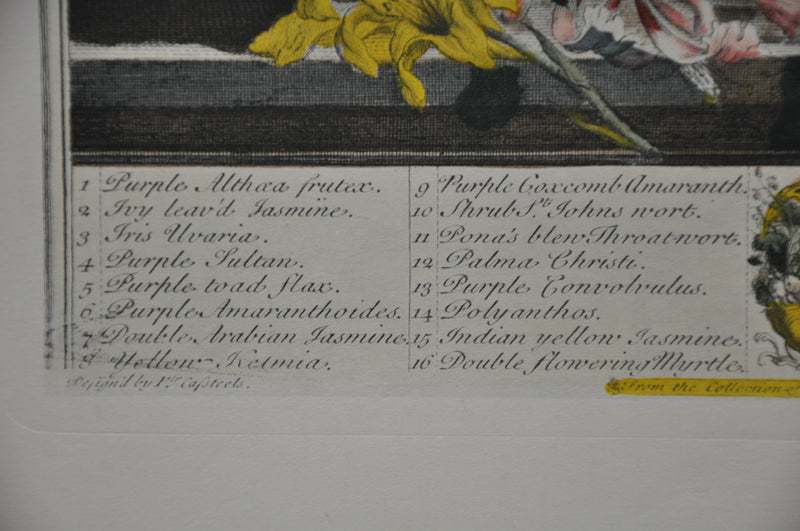 1 Purple Althœa frutex.
2 Ivy leav'd Jasmine.
3 Iris Uvaria.
4 Purple Sultan.
5 Purple toad flax.
6 Purple Amaranthoides.
7 Double Arabian Jasmine.
8 Yellow Ketmia.
9 Purple Coxcomb Amaranth.
10 Shrub St. Johns wort.
11 Pona's blew Throatwort.
12 Palma Christi.
13 Purple Convolvulus.
14 Polyanthos.
15 Indian yellow Jasmine.
16 Double flowering Myrtle.
Design'd by Pr. Casteels.
From the Collection of